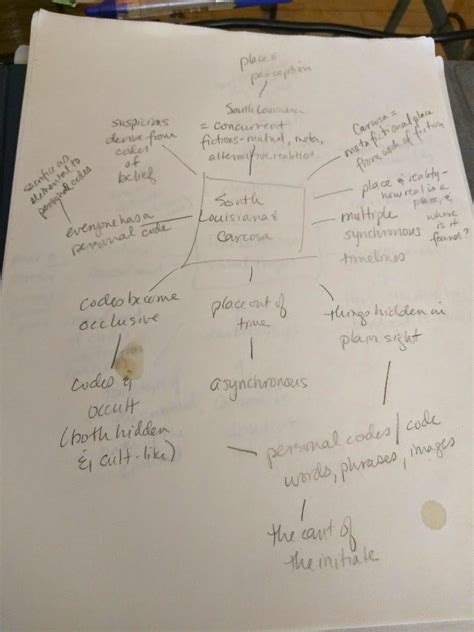 place &
perception
South Louisiana
= concurrent
fictions-mutual, meta,
alternative realities
suspicions
derive from
codes
of
belief
Carcosa =
metafictional place
from work of fiction
sacrifice as
elemental to
personal codes
everyone has a
personal code
South
Louisiana &
Carcosa
place & reality-
how real is a
place, &
where
is it
found?
multiple
synchronous
timelines
codes become
occlusive
place out of
time
things hidden in
plain sight
codes &
occult
(both hidden
& cult-like)
asynchronous
personal codes / code
words, phrases, images
the cant of
the initiate